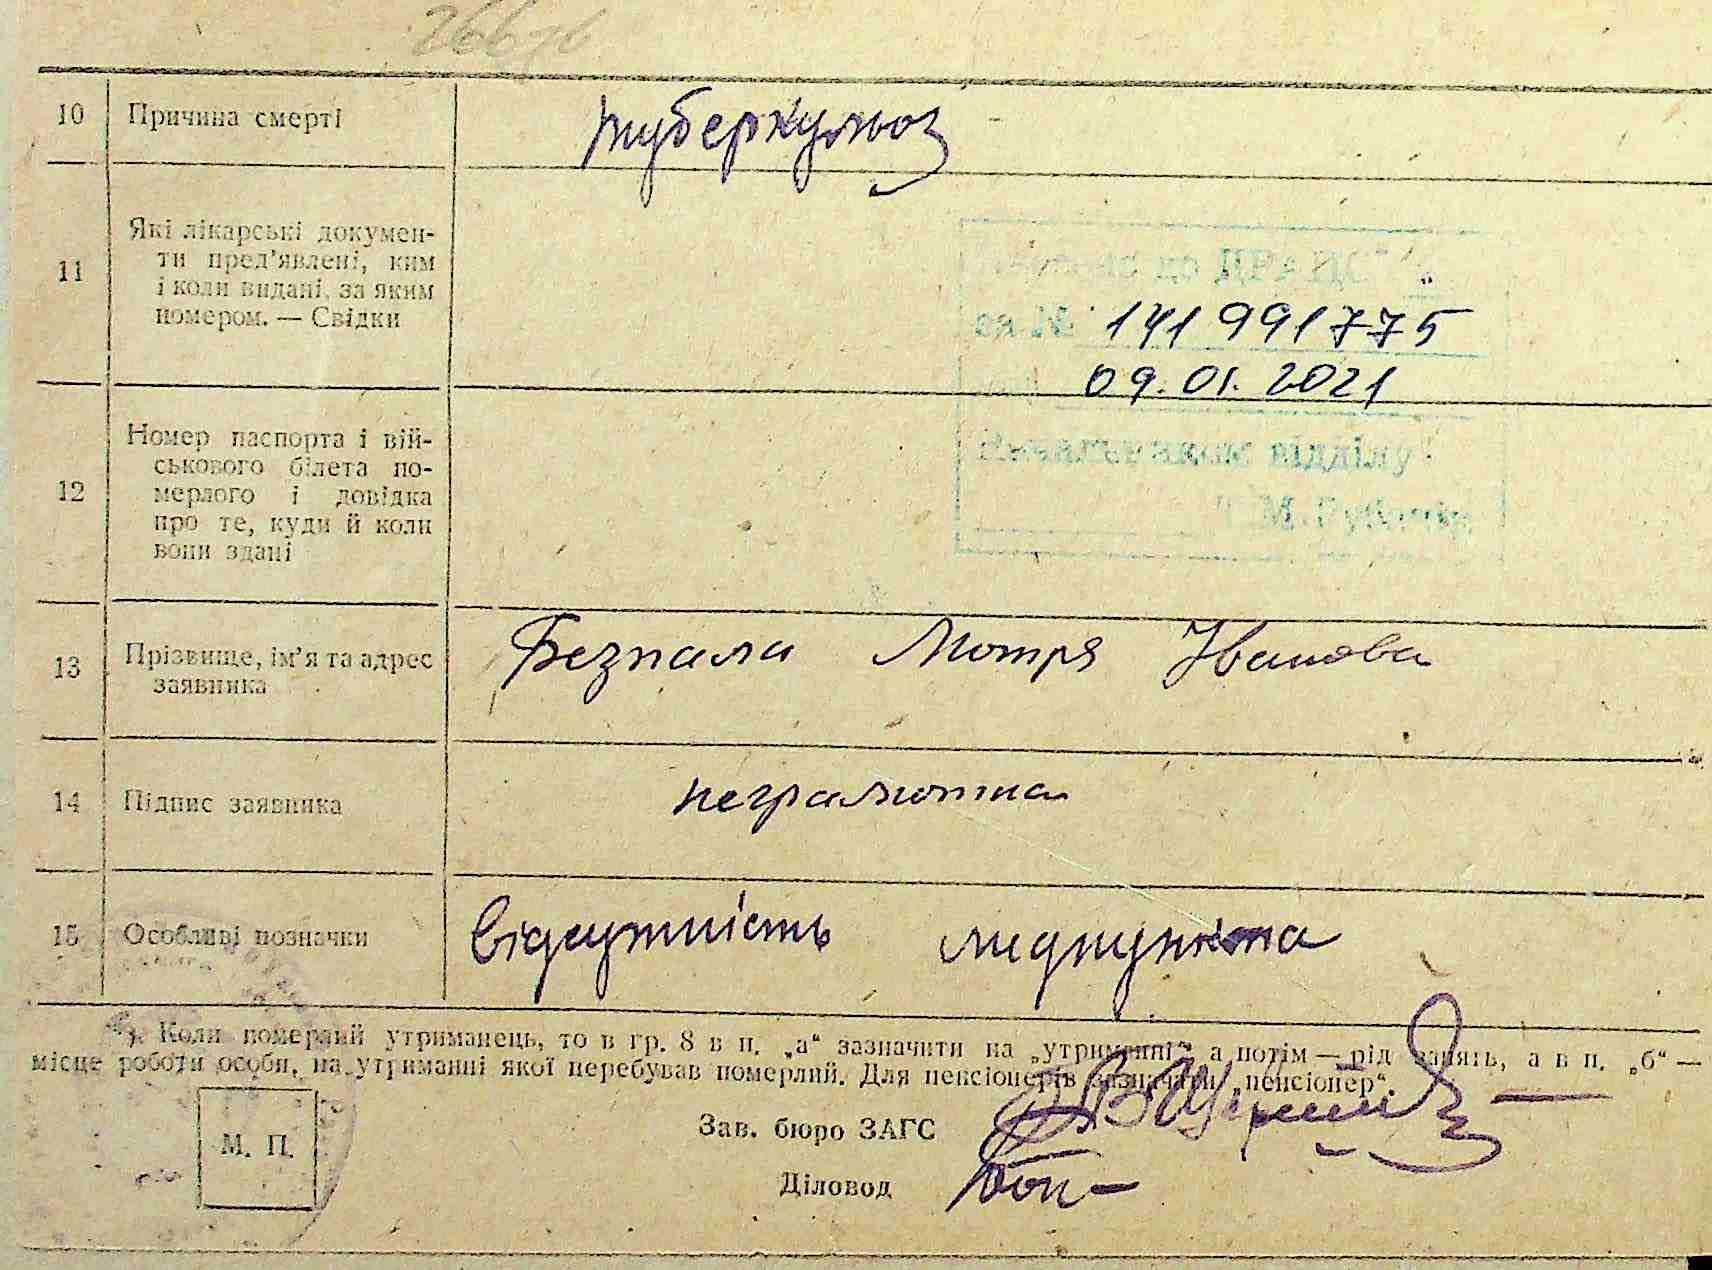 10 Причина смерті туберкульоз
11 Які лікарські докумен-
ти пред'явлені, ким
і коли видані, за яким
номером. — Свідки
до ДРАЦС
за № 141991775
09.01.2021
12 Номер паспорта і вій-
ськового білета по-
мерлого і довідка
про те, куди й коли
вони здані
Начальником відділу
М.
13 Прізвище, ім'я та адрес
заявника
Безпала Мотря Іванова
14 Підпис заявника неграмотна
15 Особливі позначки Відсутність медпункта
*) Коли померлий утриманець, то в гр. 8 в п. „а“ зазначити на „утриманні“ а потім — рід занять, а в п. „б“ —
місце роботи особи, на утриманні якої перебував померлий. Для пенсіонерів зазначати „пенсіонер“.
М. П.
Зав. бюро ЗАГС
Діловод